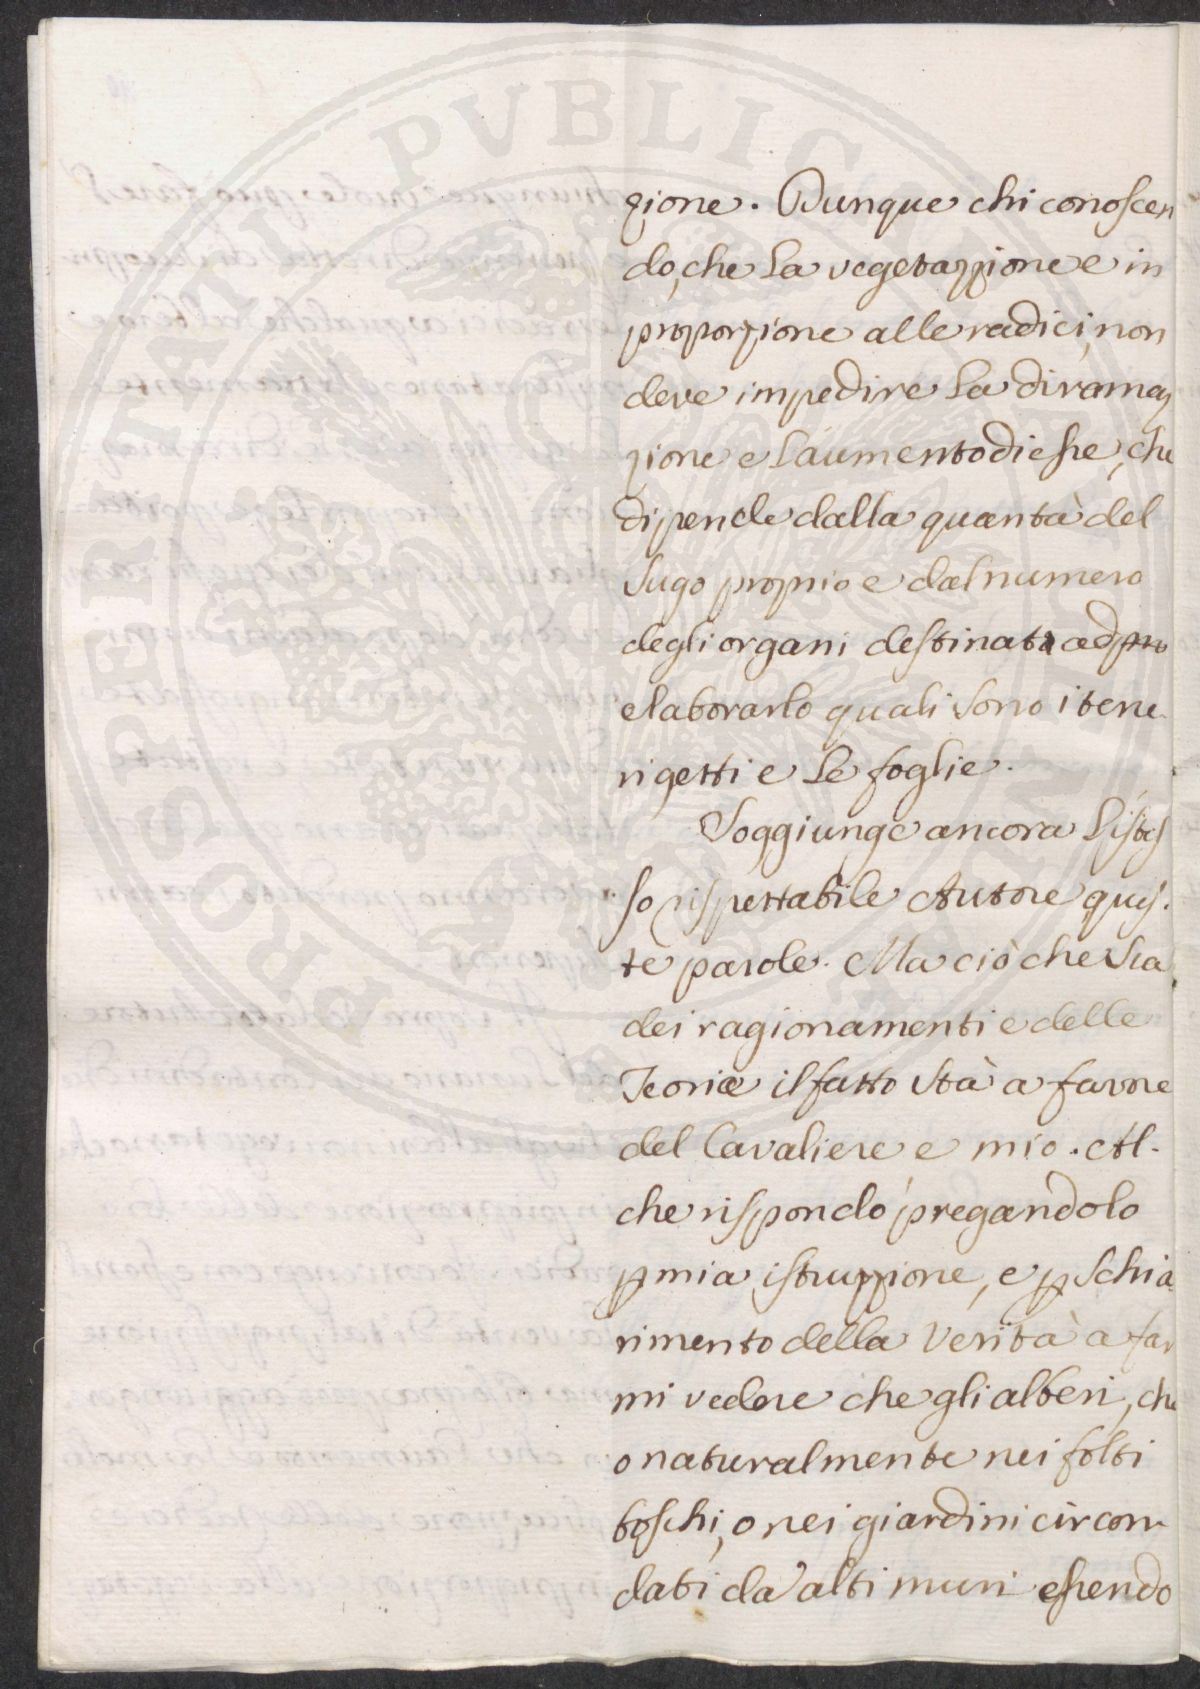 PROSPERITATI PVBLICAE AVGENDAE
zione. Dunque chi conoscen
do, che la vegetazzione e in
proporzione alle radici, non
deve impedire la diramaz
zione e l'aumento di esse, che
dipende dalla quantà del
sugo proprio e dal numero
degli organi destinati ad pro
elaborarlo quali sono i tene
ri getti e le foglie.
Soggiunge ancora l'istes
so rispettabile Autore ques
te parole. Ma ciò che sia
dei ragionamenti e delle
Teorie il fatto stà a favore
del Cavaliere e mio. Al
che rispondo pregandolo
p mia istruzzione, e p schia
rimento della verità a far
mi vedere che gli alberi, che
o naturalmente nei folti
boschi, o nei giardini circon
dati da alti muri essendo